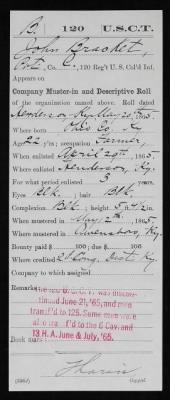 B. 120 U.S.C.T.
John Bracket,
Pvt, Co. C, 120 Reg't U. S. Col'd Inf.
Appears on
Company Muster-in and Descriptive Roll
of the organization named above. Roll dated
Henderson, Ky. May 20, 1865
Where born Ohio Co, Ky
Age 22 y'rs; occupation Farmer,
When enlisted April 29th, 1865
Where enlisted Henderson, Ky.
For what period enlisted 3 years.
Eyes Blk. ; hair Blk.
Complexion Blk. ; height 5 ft. in.
When mustered in May 2nd, 1865
Where mustered in Owensboro, Ky.
Bounty paid $ 100 ; due $ 100
Where credited 2 Cong. Dist. Ky.
Company to which assigned
Remarks:
U. S. C. T. was discon-
tinued June 21, '65, and men
transf'd to 125. Some men were
also transf'd to 6 Cav. and
13 H. A. June & July, '65.
Book mark: